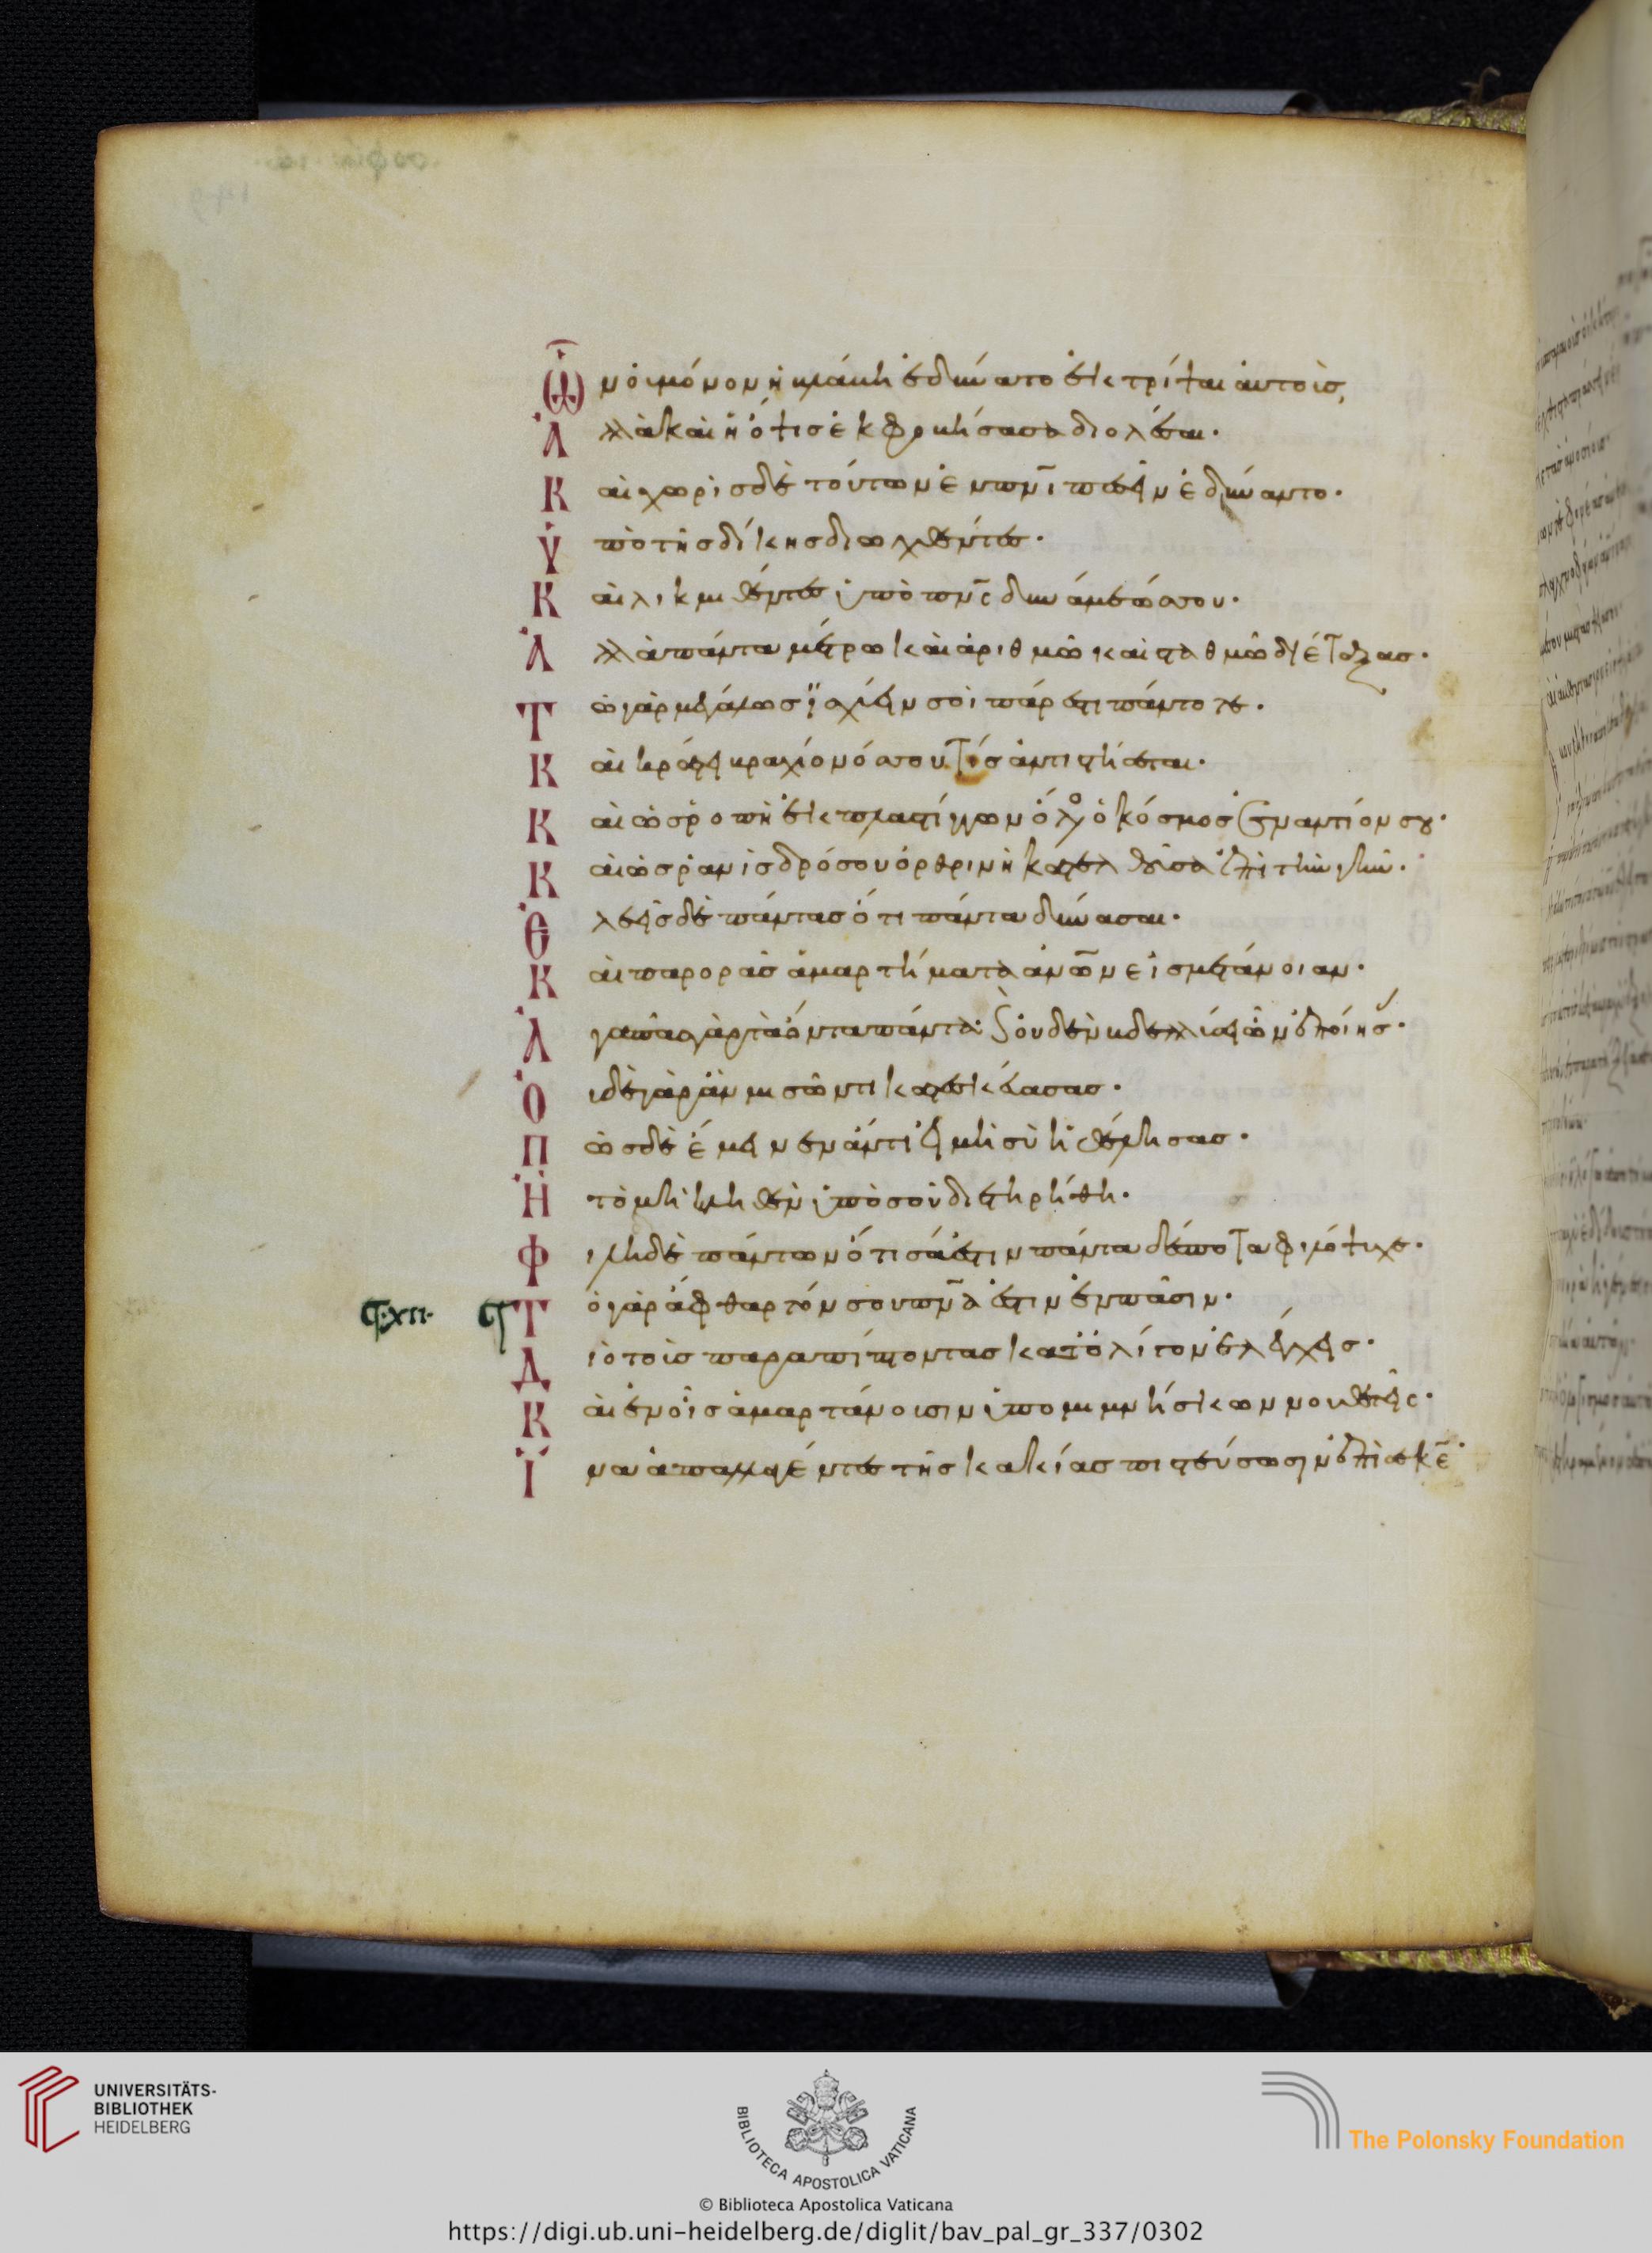 Ὧν οὐ μόνον ἡ βλάβη ἐδύνατο ἐκτρίψαι αὐτοὺσ,
Ἀλλὰ καὶ ἡ ὄψισ ἐκφοβήσασα διολέσαι.
Καὶ χωρὶσ δὲ τούτων ἑνὶ πν̅ι πεσεῖν ἐδύναντο.
Ὑπὸ τῆσ δίκησ διωχθέντεσ.
Καὶ λικμηθέντεσ ὑπὸ πν̅σ δυνάμεώσ σου.
Ἀλλὰ πάντα μέτρω καὶ ἀριθμῶ καὶ σταθμῶ διέταξασ.
Τὸ γὰρ μεγάλωσ ἰσχύειν σοὶ πάρεστι πάντοτε.
Καὶ κράτει βραχίονόσ σου τίσ ἀντιστήσεται.
Καὶ ὡσ ῥοπὴ ἐκ πλαστίγγων ὅλοσ ὁ κόσμοσ ἐναντίον σου.
Καὶ ὡσ ῥανὶσ δρόσου ὀρθρινὴ κατελθοῦσα ἐπὶ τὴν γῆν.
Ἐλεεῖσ δὲ πάντασ ὅτι πάντα δύνασαι.
Καὶ παρορᾶσ ἁμαρτήματα ἀν̅ων εἰσ μετάνοιαν.
Ἀγαπᾶσ γὰρ τὰ ὄντα πάντα. καὶ οὐδὲν βδελύσσει ὧν ἐποίησασ.
Οὐδὲ γὰρ ἂν μισῶν τι κατεσκεύασασ.
Πῶσ δὲ ἔμεινεν ἄν τι εἰ μὴ σὺ ἠθέλησασ.
Ἢ τὸ μὴ κληθὲν ὑπὸ σοῦ διετηρήθη.
Φείδη δὲ πάντων ὅτι σά ἐστιν πάντα δέσποτα φιλόψυχε.
ϛ χπ. ϛ Τὸ γὰρ ἄφθαρτόν σου πν̅α ἐστιν ἐν πᾶσιν.
Διὸ τοὺσ παραπίπτοντασ κατ' ὀλίγον ἐλέγχεισ.
Καὶ ἐν οἷσ ἁμαρτάνουσιν ὑπομιμνήσκων νουθετεῖσ.
Ἵνα ἀπαλλαγέντεσ τῆσ κακίασ πιστεύσωσιν ἐπὶ σὲ κ̅ε.
UNIVERSITÄTS-
BIBLIOTHEK
HEIDELBERG
BIBLIOTECA APOSTOLICA VATICANA
The Polonsky Foundation
© Biblioteca Apostolica Vaticana
https://digi.ub.uni-heidelberg.de/diglit/bav_pal_gr_337/0302